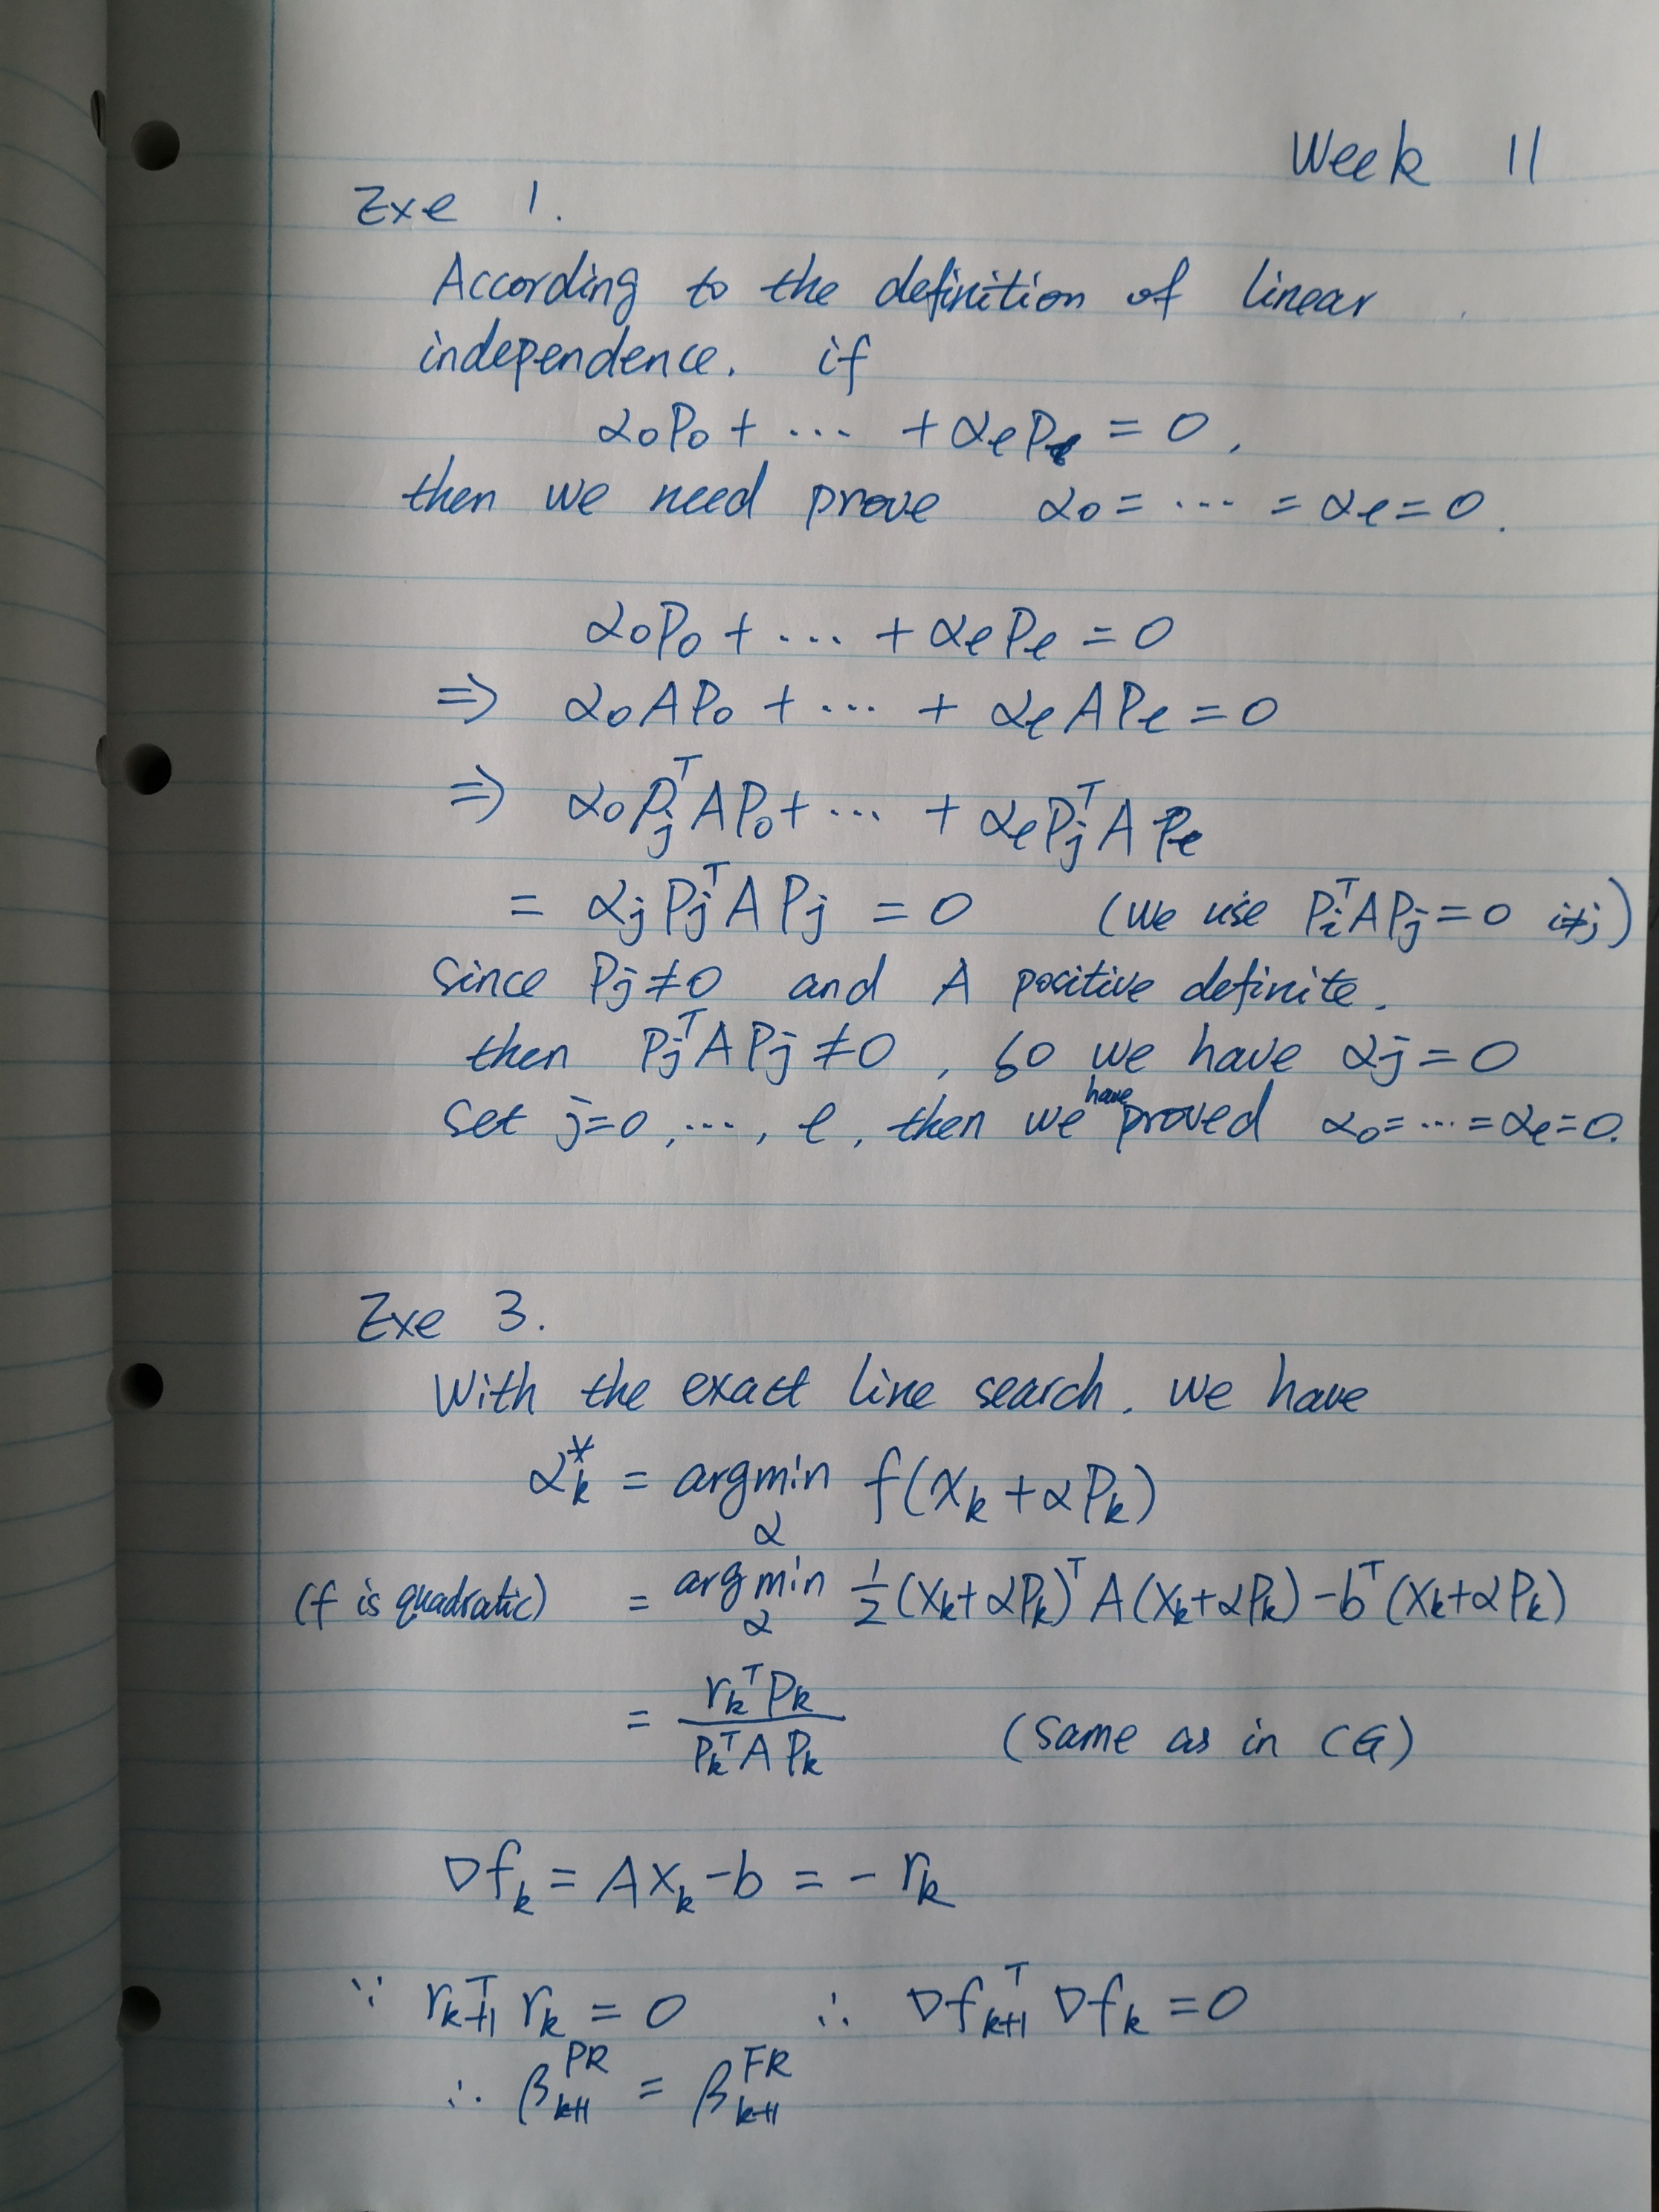 Week 11
Exe 1.
According to the definition of linear
independence. if
α₀P₀ + ... + αₗPₗ = 0,
then we need prove α₀ = ... = αₗ = 0.
α₀P₀ + ... + αₗPₗ = 0
⇒ α₀AP₀ + ... + αₗAPₗ = 0
⇒ α₀Pⱼᵀ A P₀ + ... + αₗPⱼᵀ A Pₗ
= αⱼ Pⱼᵀ A Pⱼ = 0 (we use Pᵢᵀ A Pⱼ = 0 i≠j)
since Pⱼ ≠ 0 and A positive definite.
then Pⱼᵀ A Pⱼ ≠ 0, so we have αⱼ = 0
set j=0, ..., ℓ, then we have proved α₀ = ... = αₗ = 0.
Exe 3.
With the exact line search. we have
αₖ* = argmin_α f(xₖ + αPₖ)
(f is quadratic) = argmin_α ½(xₖ+αPₖ)ᵀ A(xₖ+αPₖ) - bᵀ(xₖ+αPₖ)
= rₖᵀPₖ / PₖᵀAPₖ (same as in CG)
∇fₖ = Axₖ - b = -rₖ
∵ rₖ₊₁ᵀ rₖ = 0 ∴ ∇fₖ₊₁ᵀ ∇fₖ = 0
∴ βₖ₊₁^PR = βₖ₊₁^FR